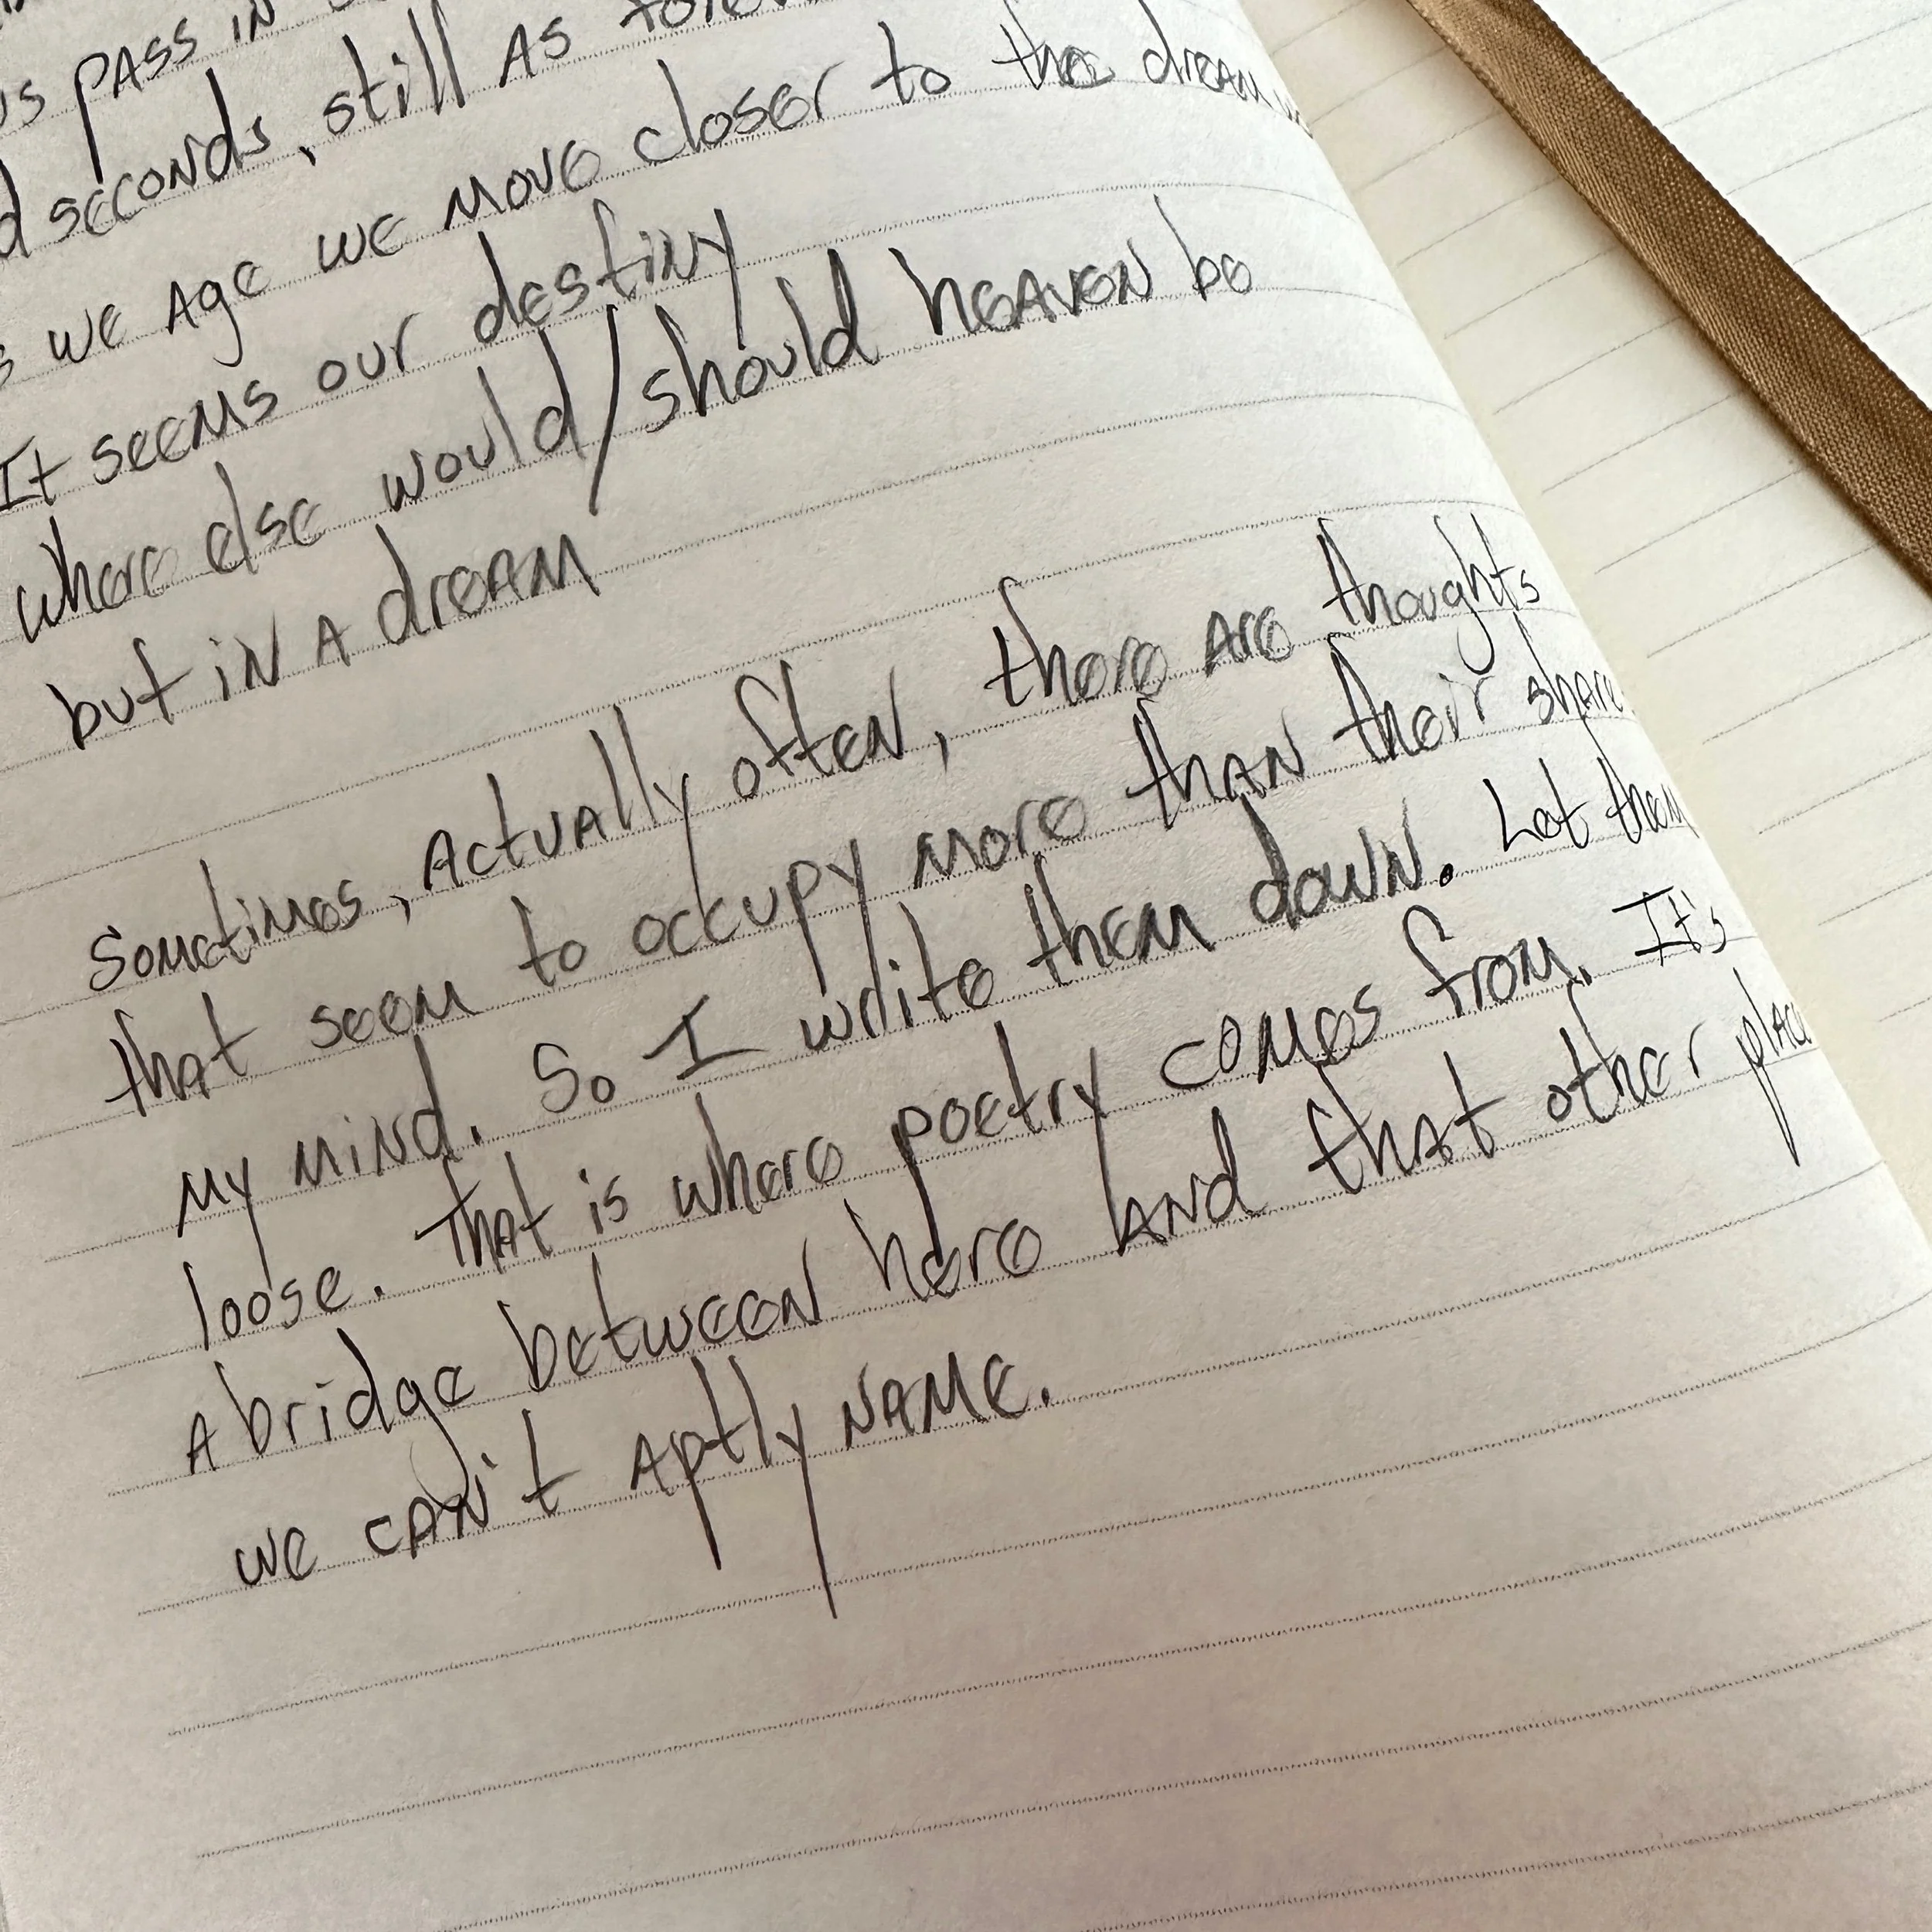 pass in
seconds, still as
we age we move closer to the dream
It seems our destiny
where else would/should heaven be
but in a dream
Sometimes, actually often, there are thoughts
that seem to occupy more than their share
my mind. So I write them down. Let them
loose. That is where poetry comes from. It's
a bridge between here and that other place
we can't aptly name.